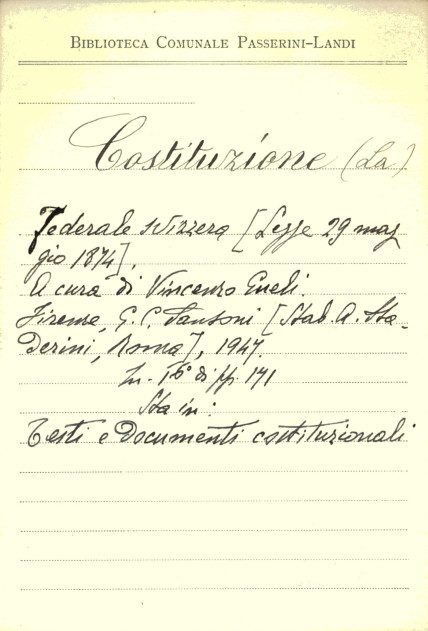 BIBLIOTECA COMUNALE PASSERINI-LANDI
Costituzione (La)
Federale svizzera [Legge 29 mag
gio 1874].
A cura di Vincenzo Gueli.
Firenze, G. C. Sansoni [Stab. A. Sta-
derini, Roma], 1947.
In-16° di pp. 171
Sta in:
Testi e Documenti costituzionali